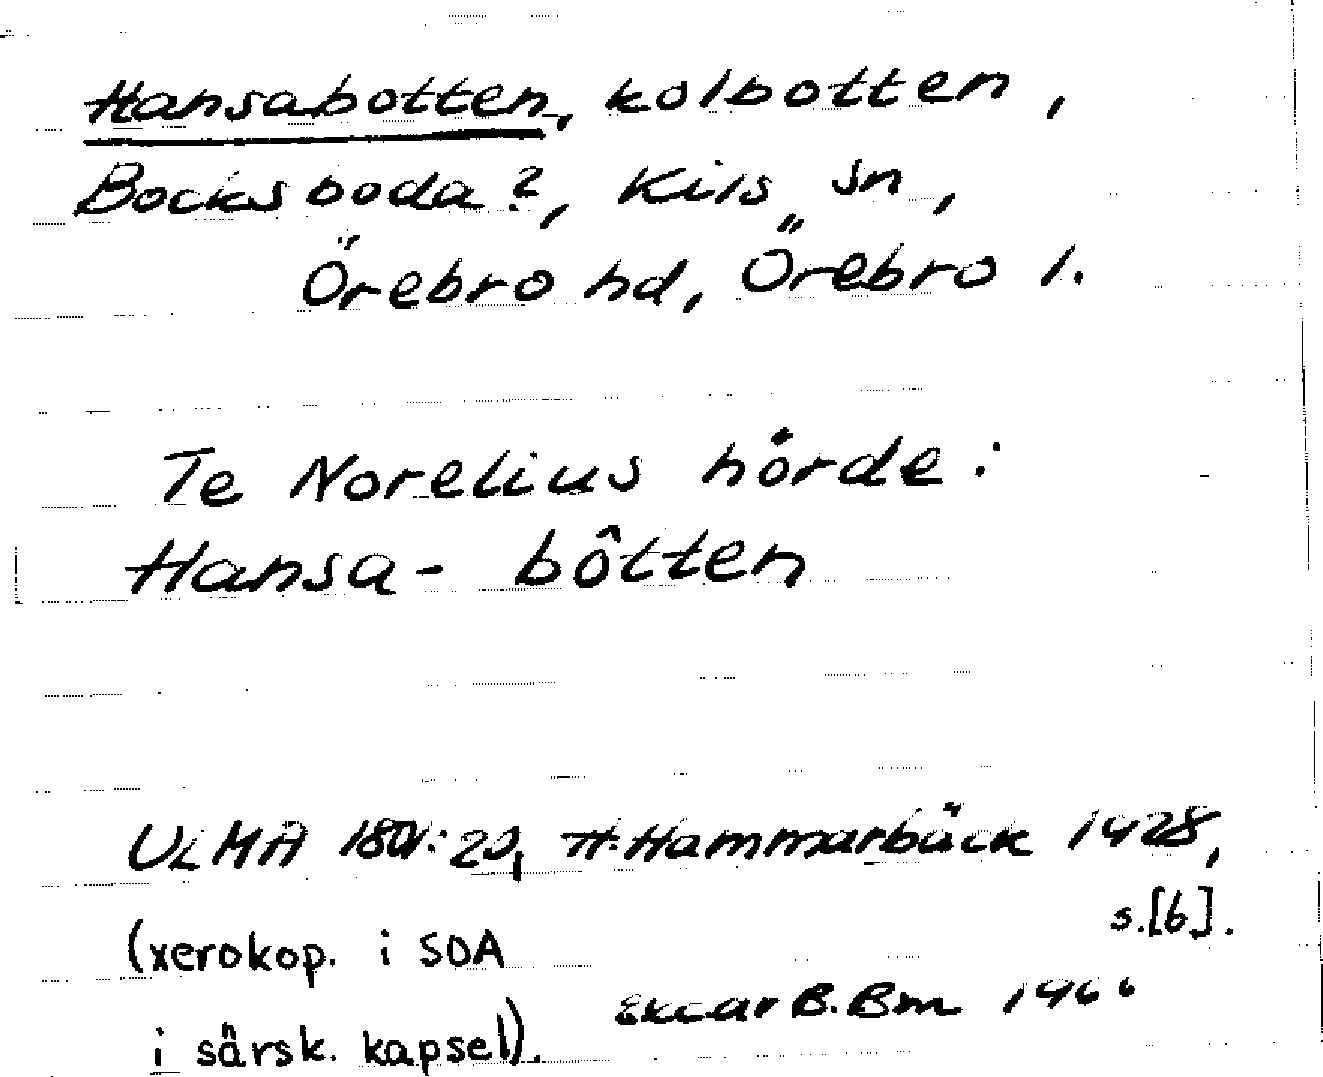 Hansabotten, kolbotten,
Bocksboda?, Kils sn,
Örebro hd, Örebro l.
Te Norelius hörde:
Hansa- bôtten
ULMA 1801:20, H. Hammarbäck 1928,
s.[6].
(xerokop. i SOA
B. Bm 1966
i särsk. kapsel).